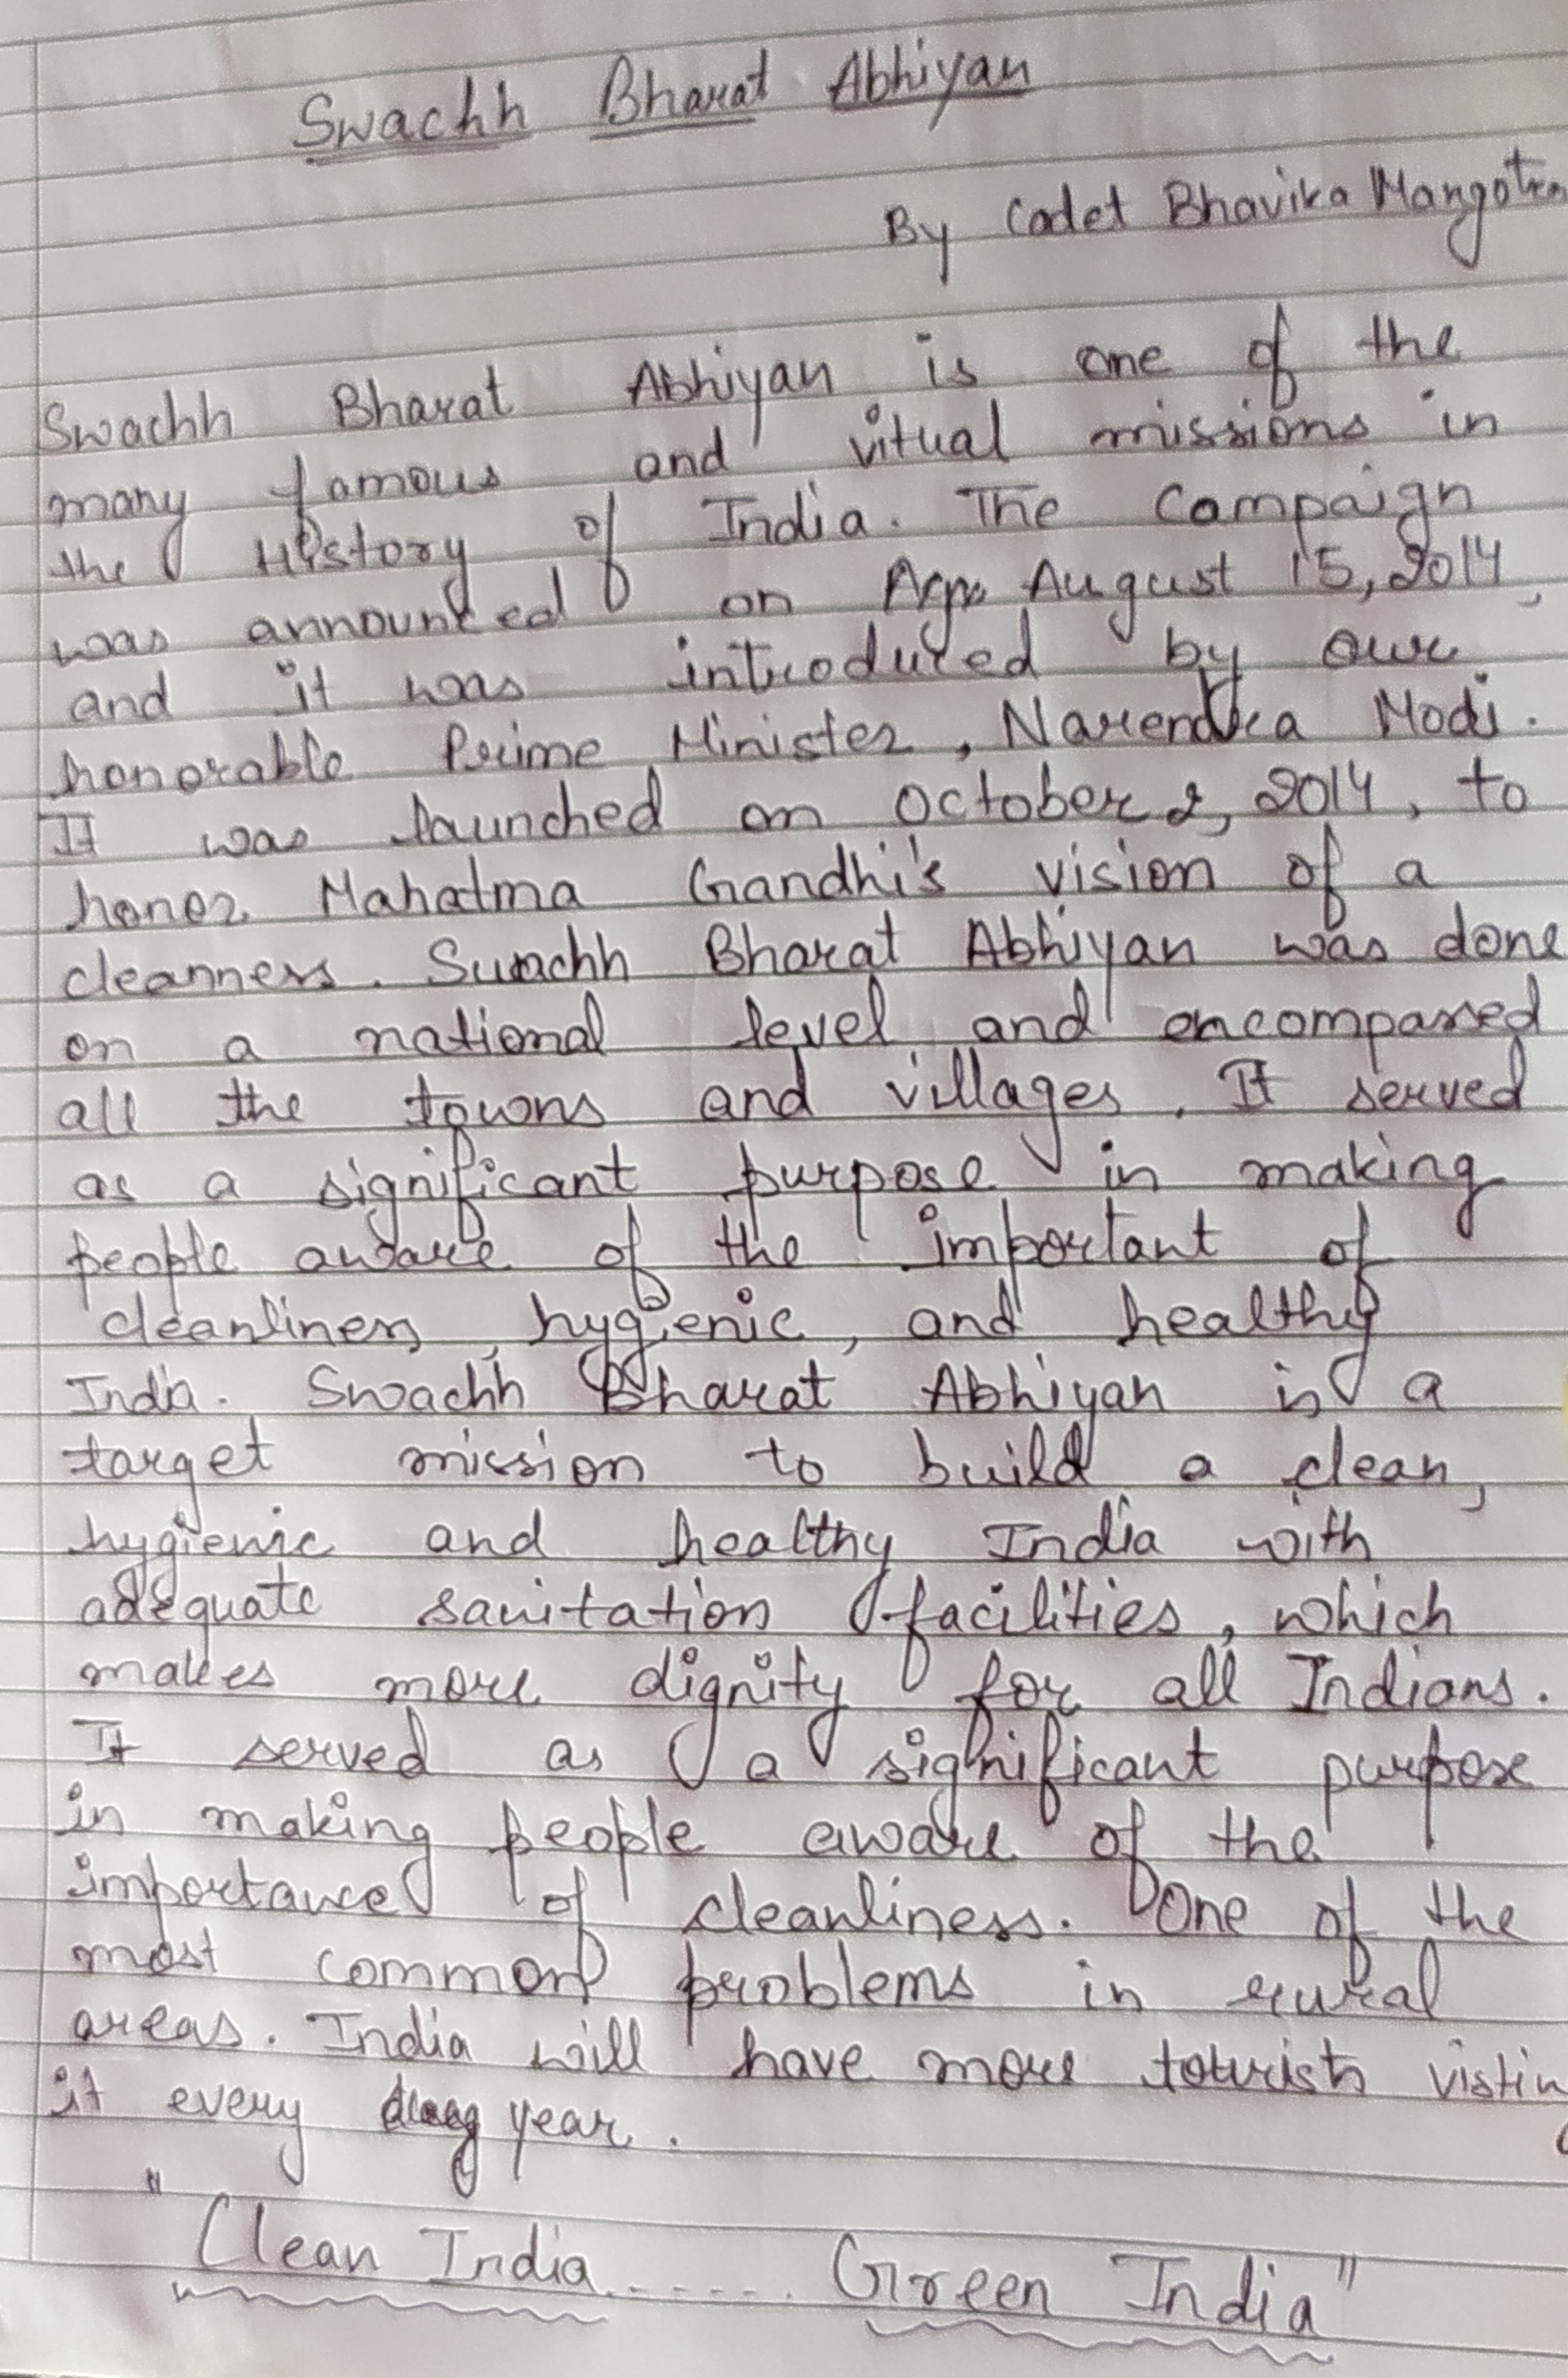 Swachh Bharat Abhiyan
By Cadet Bhavika Mangotra
Swachh Bharat Abhiyan is one of the
many famous and vitual missions in
the History of India. The Campaign
was announced on August 15, 2014,
and it was introduced by our
honorable Prime Minister, Narendra Modi.
It was launched on October 2, 2014, to
honor Mahatma Gandhi's vision of a
cleanness. Swachh Bharat Abhiyan was done
on a national level and encompassed
all the towns and villages. It served
as a significant purpose in making
people aware of the important of
cleanliness, hygienic, and healthy
India. Swachh Bharat Abhiyan is a
target mission to build a clean,
hygienic and healthy India with
adequate sanitation facilities, which
makes more dignity for all Indians.
It served as a significant purpose
in making people aware of the
importance of cleanliness. One of the
most common problems in rural
areas. India will have more tourists visting
it every year.
"Clean India...... Green India"